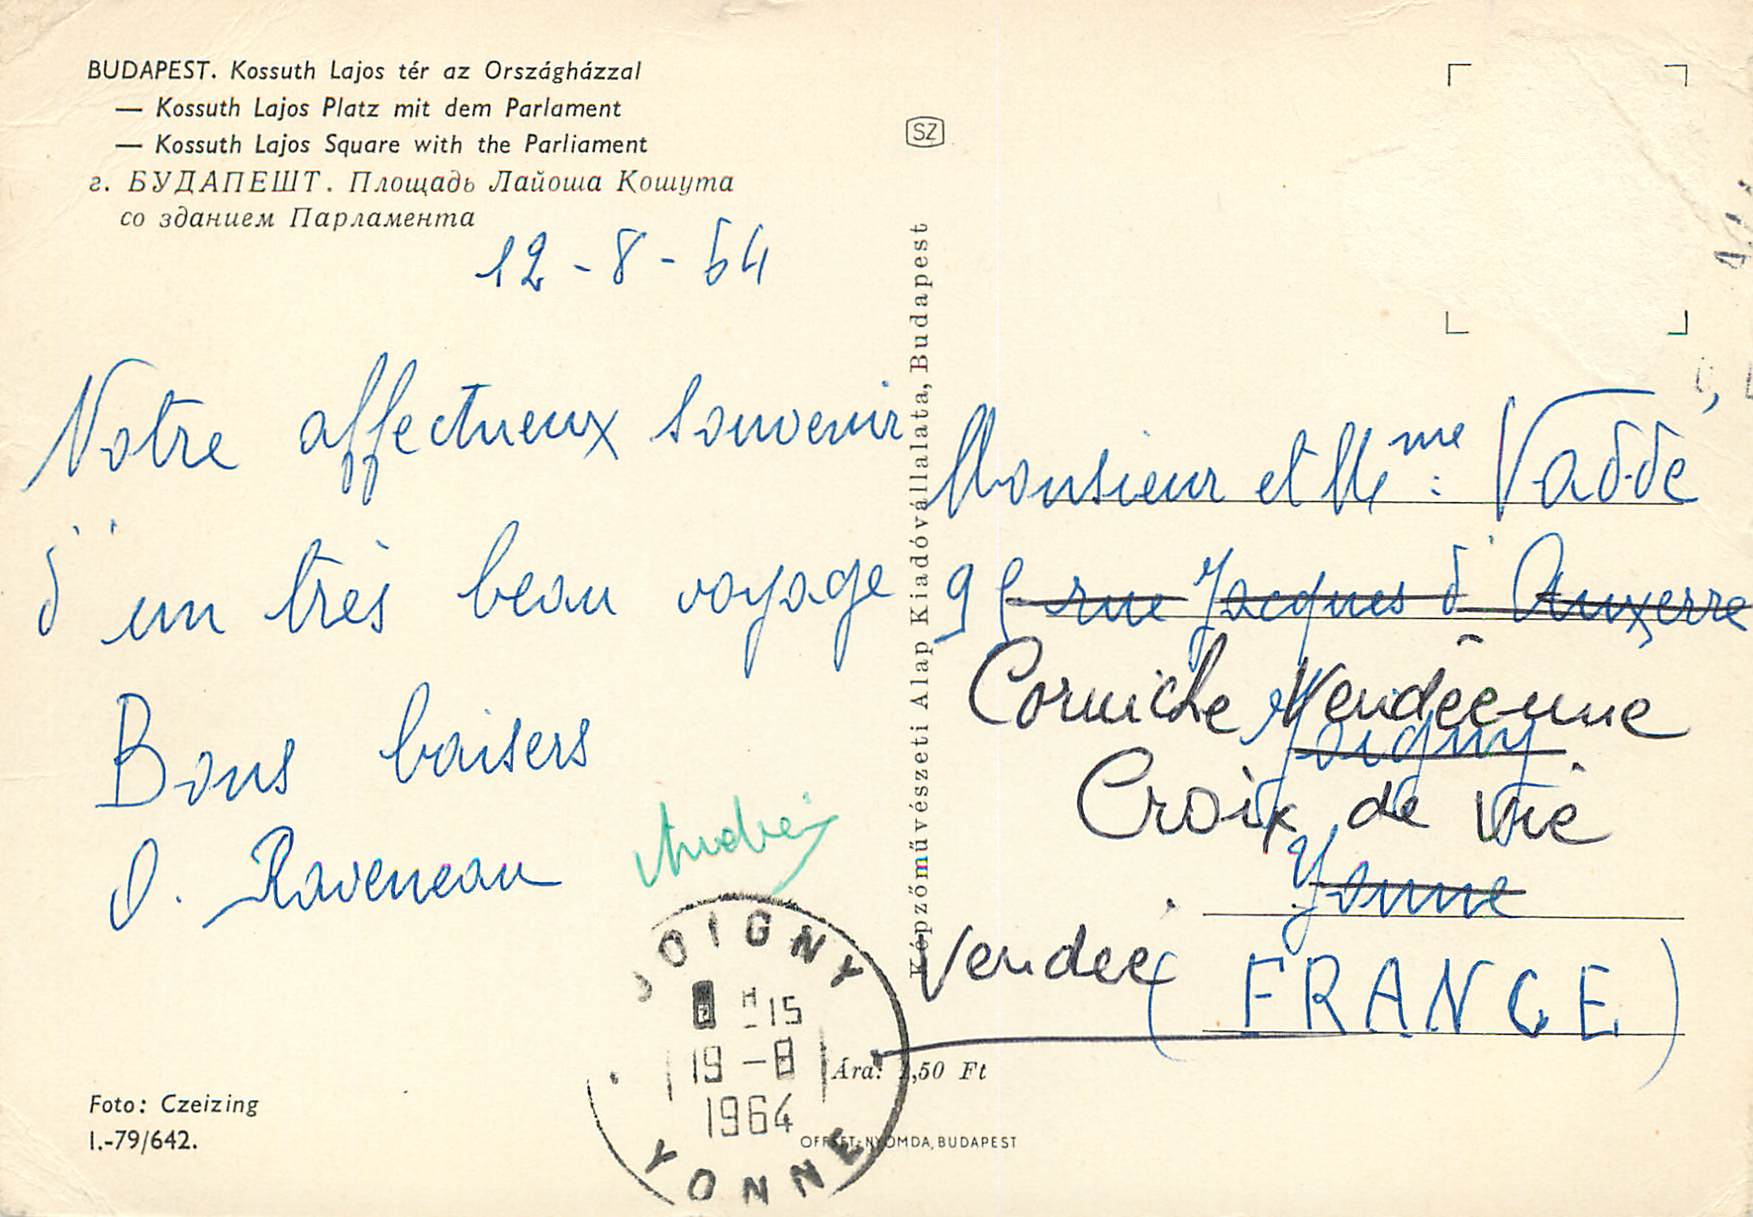 BUDAPEST. Kossuth Lajos tér az Országházzal
— Kossuth Lajos Platz mit dem Parlament
— Kossuth Lajos Square with the Parliament
г. БУДАПЕШТ. Площадь Лайоша Кошута
со зданием Парламента
12 - 8 - 64
Notre affectueux souvenir
d'un très beau voyage
Bons baisers
O. Raveneau
André
SZ
Képzőművészeti Alap Kiadóvállalata, Budapest
Monsieur et Mme: Vadde
9 rue Jacques d'Auxerre
Corniche Vendéenne
Joigny
Croix de Vie
Yonne
Vendée (FRANCE)
JOIGNY
H 15
19 - 8
1964
YONNE
Ára: ,50 Ft
Foto: Czeizing
I.-79/642.
OFFSET-NYOMDA, BUDAPEST